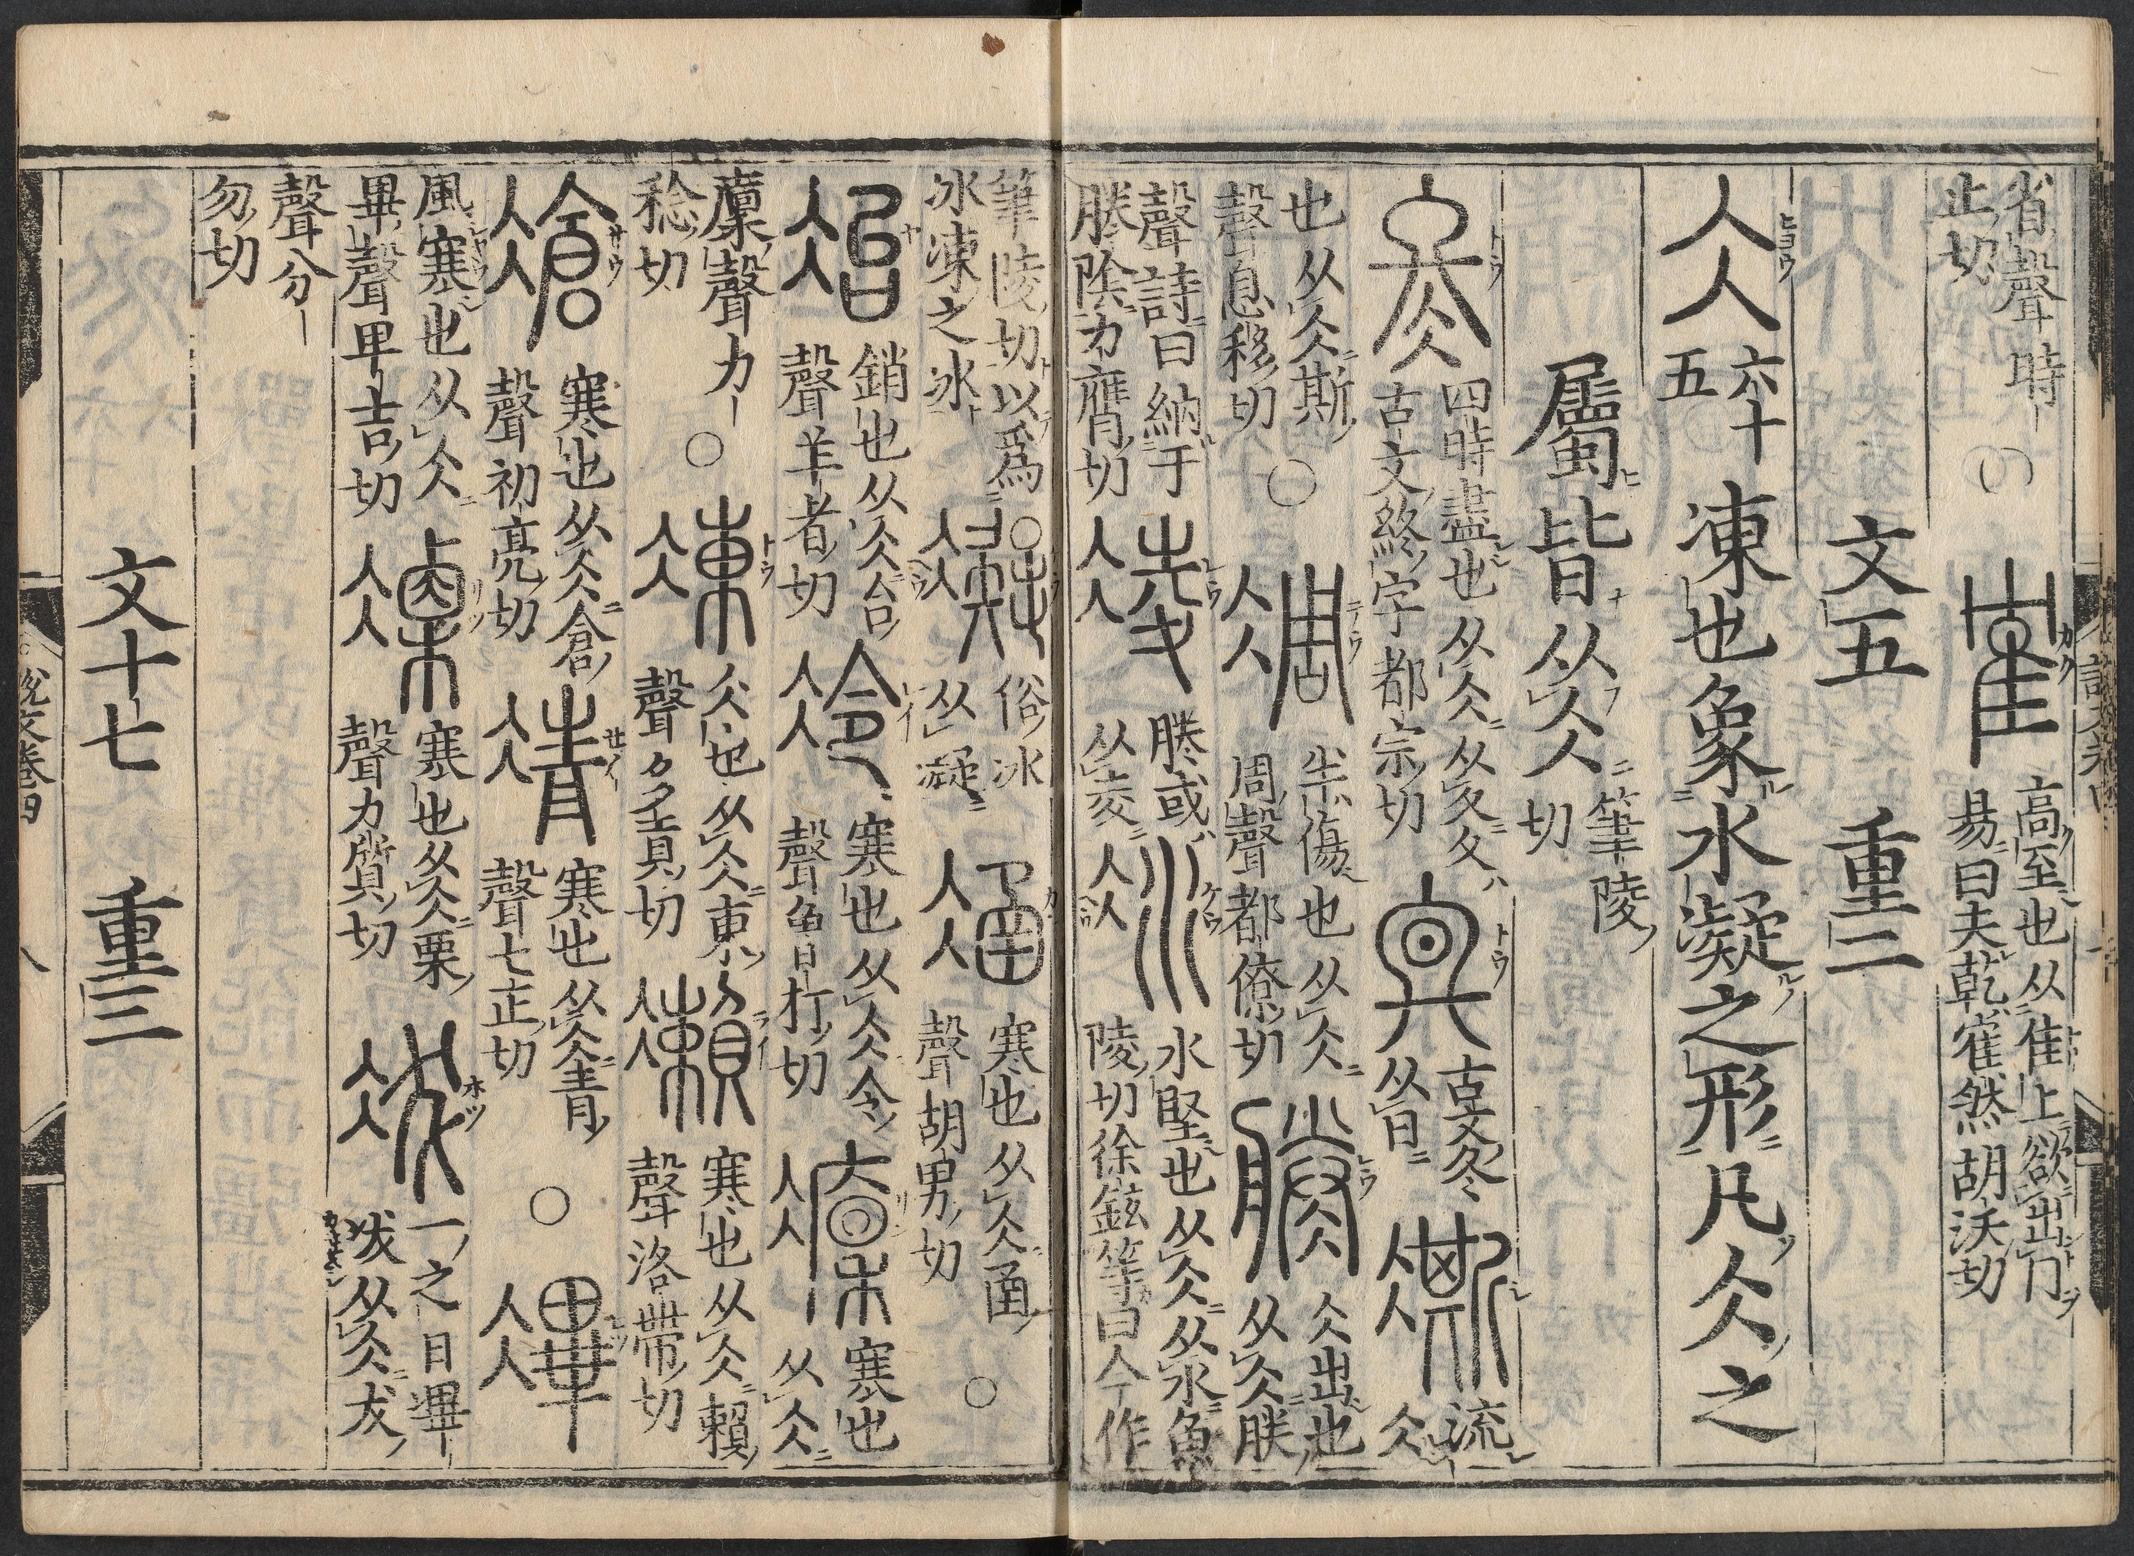 省聲時止切 ○ 隺 高至也从隹上欲出冂易曰夫乾隺然胡沃切
文五 重二
仌 六十五 凍也象水凝之形凡仌之
屬皆从仌 筆陵切
冬 四時盡也从仌从夂夂古文終字都宗切 𠔙 古文冬从日 凘 流仌
也从仌斯聲息移切 ○ 凋 半傷也从仌周聲都僚切 𦩘 仌出也从仌朕
聲詩曰納于𦩘陰力膺切 凌 𦩘或从夌 冰 水堅也从仌从水魚陵切徐鉉等曰今作
筆陵切以爲冰凍之冰 凝 俗冰从凝 凾 寒也从仌圅聲胡男切 ○
冶 銷也从仌台聲羊者切 冷 寒也从仌令聲魯打切 凜 寒也从仌
廩聲力稔切 ○ 凍 仌也从仌東聲多貢切 𠘝 寒也从仌賴聲洛帶切
凔 寒也从仌倉聲初亮切 凊 寒也从仌青聲七正切 ○ 㓖
風寒也从仌畢聲卑吉切 凓 寒也从仌栗聲力質切 冹 一之日㓖冹从仌犮
聲分勿切
文十七 重三
說文卷四 八